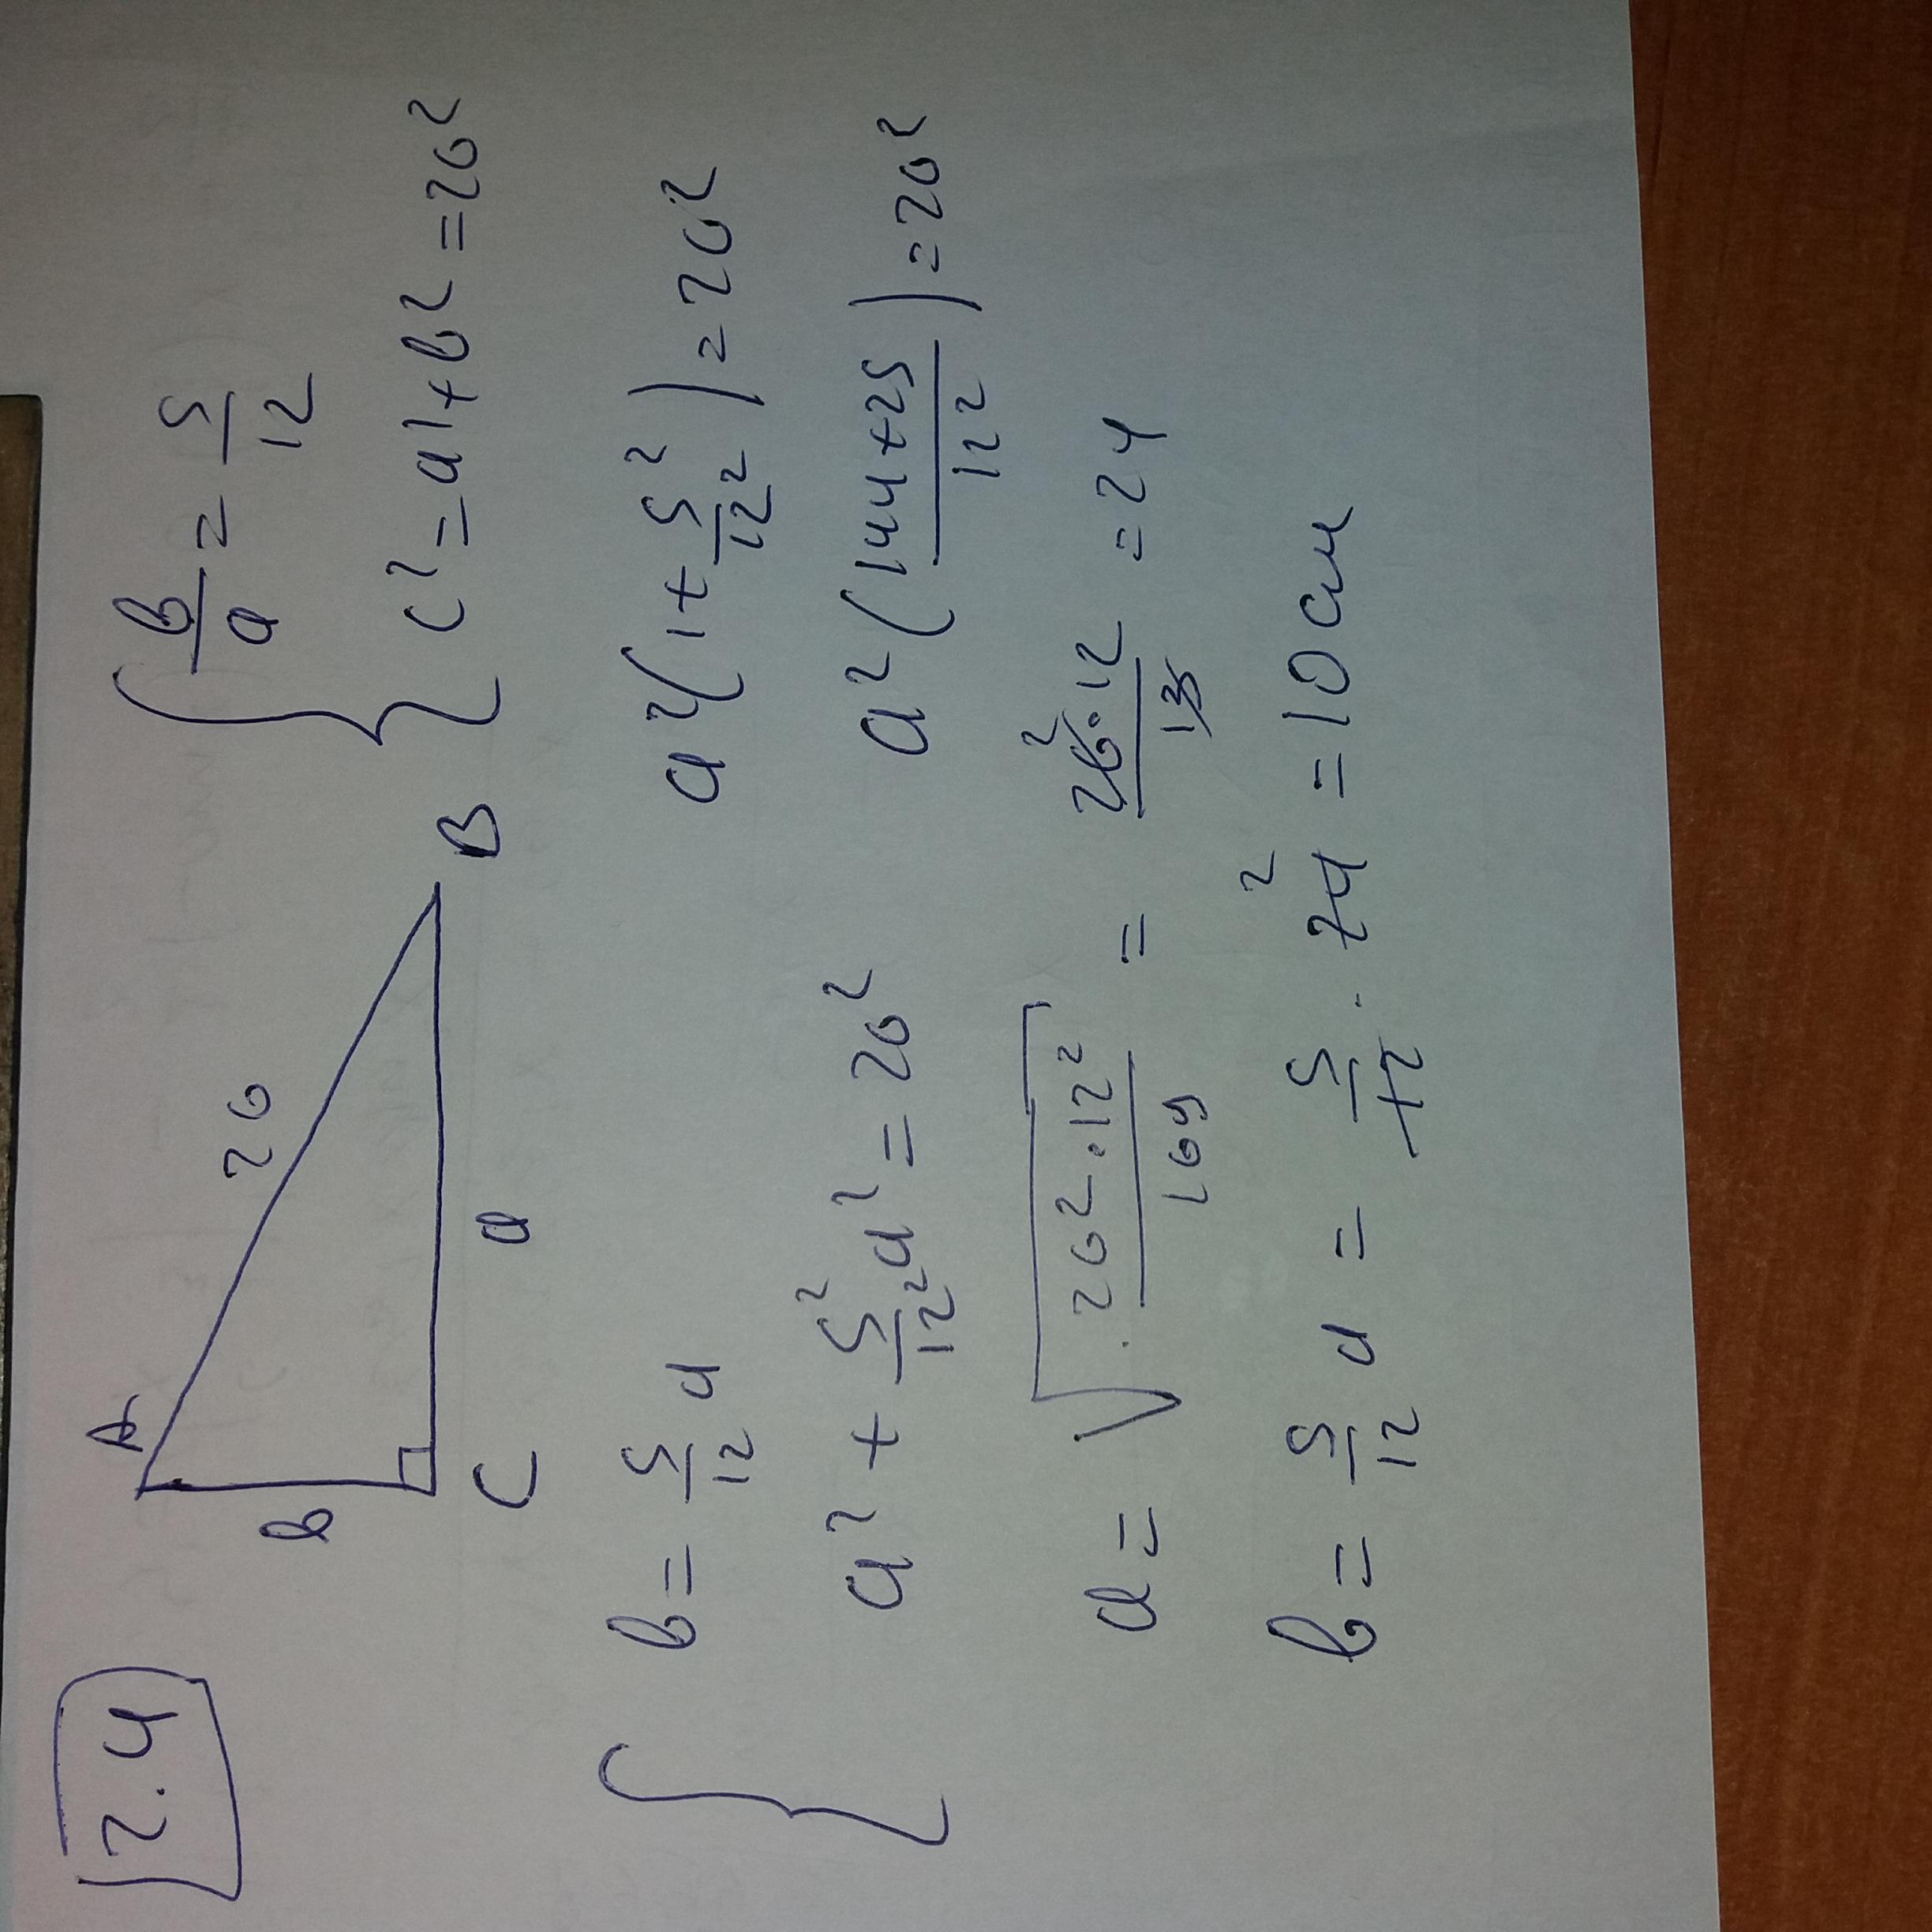 2.4
A
26
b
C
a
B
b/a = 5/12
c² = a² + b² = 26²
b = 5/12 a
a²(1 + 5²/12²) = 26²
a² + 5²/12² a² = 26²
a²(144+25/12²) = 26²
a = √(26²·12²/169) = 26·12/13 = 24
2
b = 5/12 a = 5/12 · 24 = 10 см
2